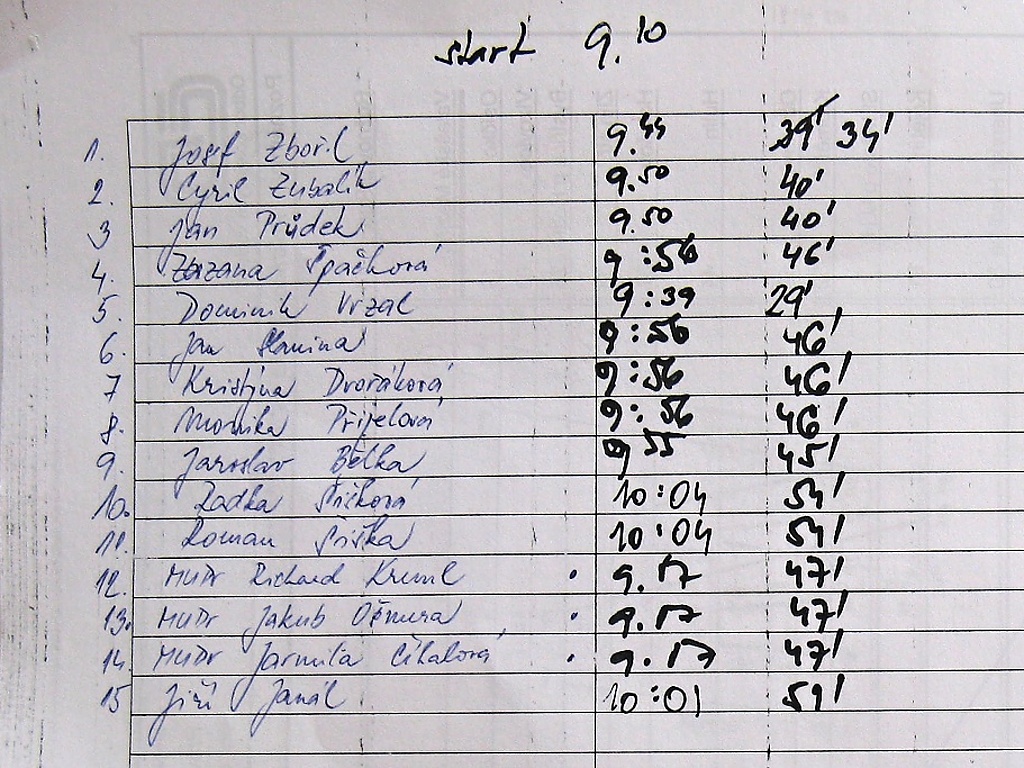 start 9.10
1. Josef Zbořil 9.44 39' 34'
2. Cyril Zubalík 9.50 40'
3 Jan Průdek 9.50 40'
4. Zuzana Špačková 9:56 46'
5. Dominik Vrzal 9:39 29'
6. Jan Slanina 9:56 46'
7 Kristýna Dvořáková 9:56 46'
8. Monika Přijelová 9:56 46'
9. Jaroslav Bělka 9 55 45'
10. Radka Šišková 10:04 54'
11. Roman Šiška 10:04 54'
12. MUDr Richard Kreml 9.17 47'
13. MUDr Jakub Ošmera 9.17 47'
14. MUDr Jarmila Cíhalová 9.17 47'
15 Jiří Janál 10:01 51'